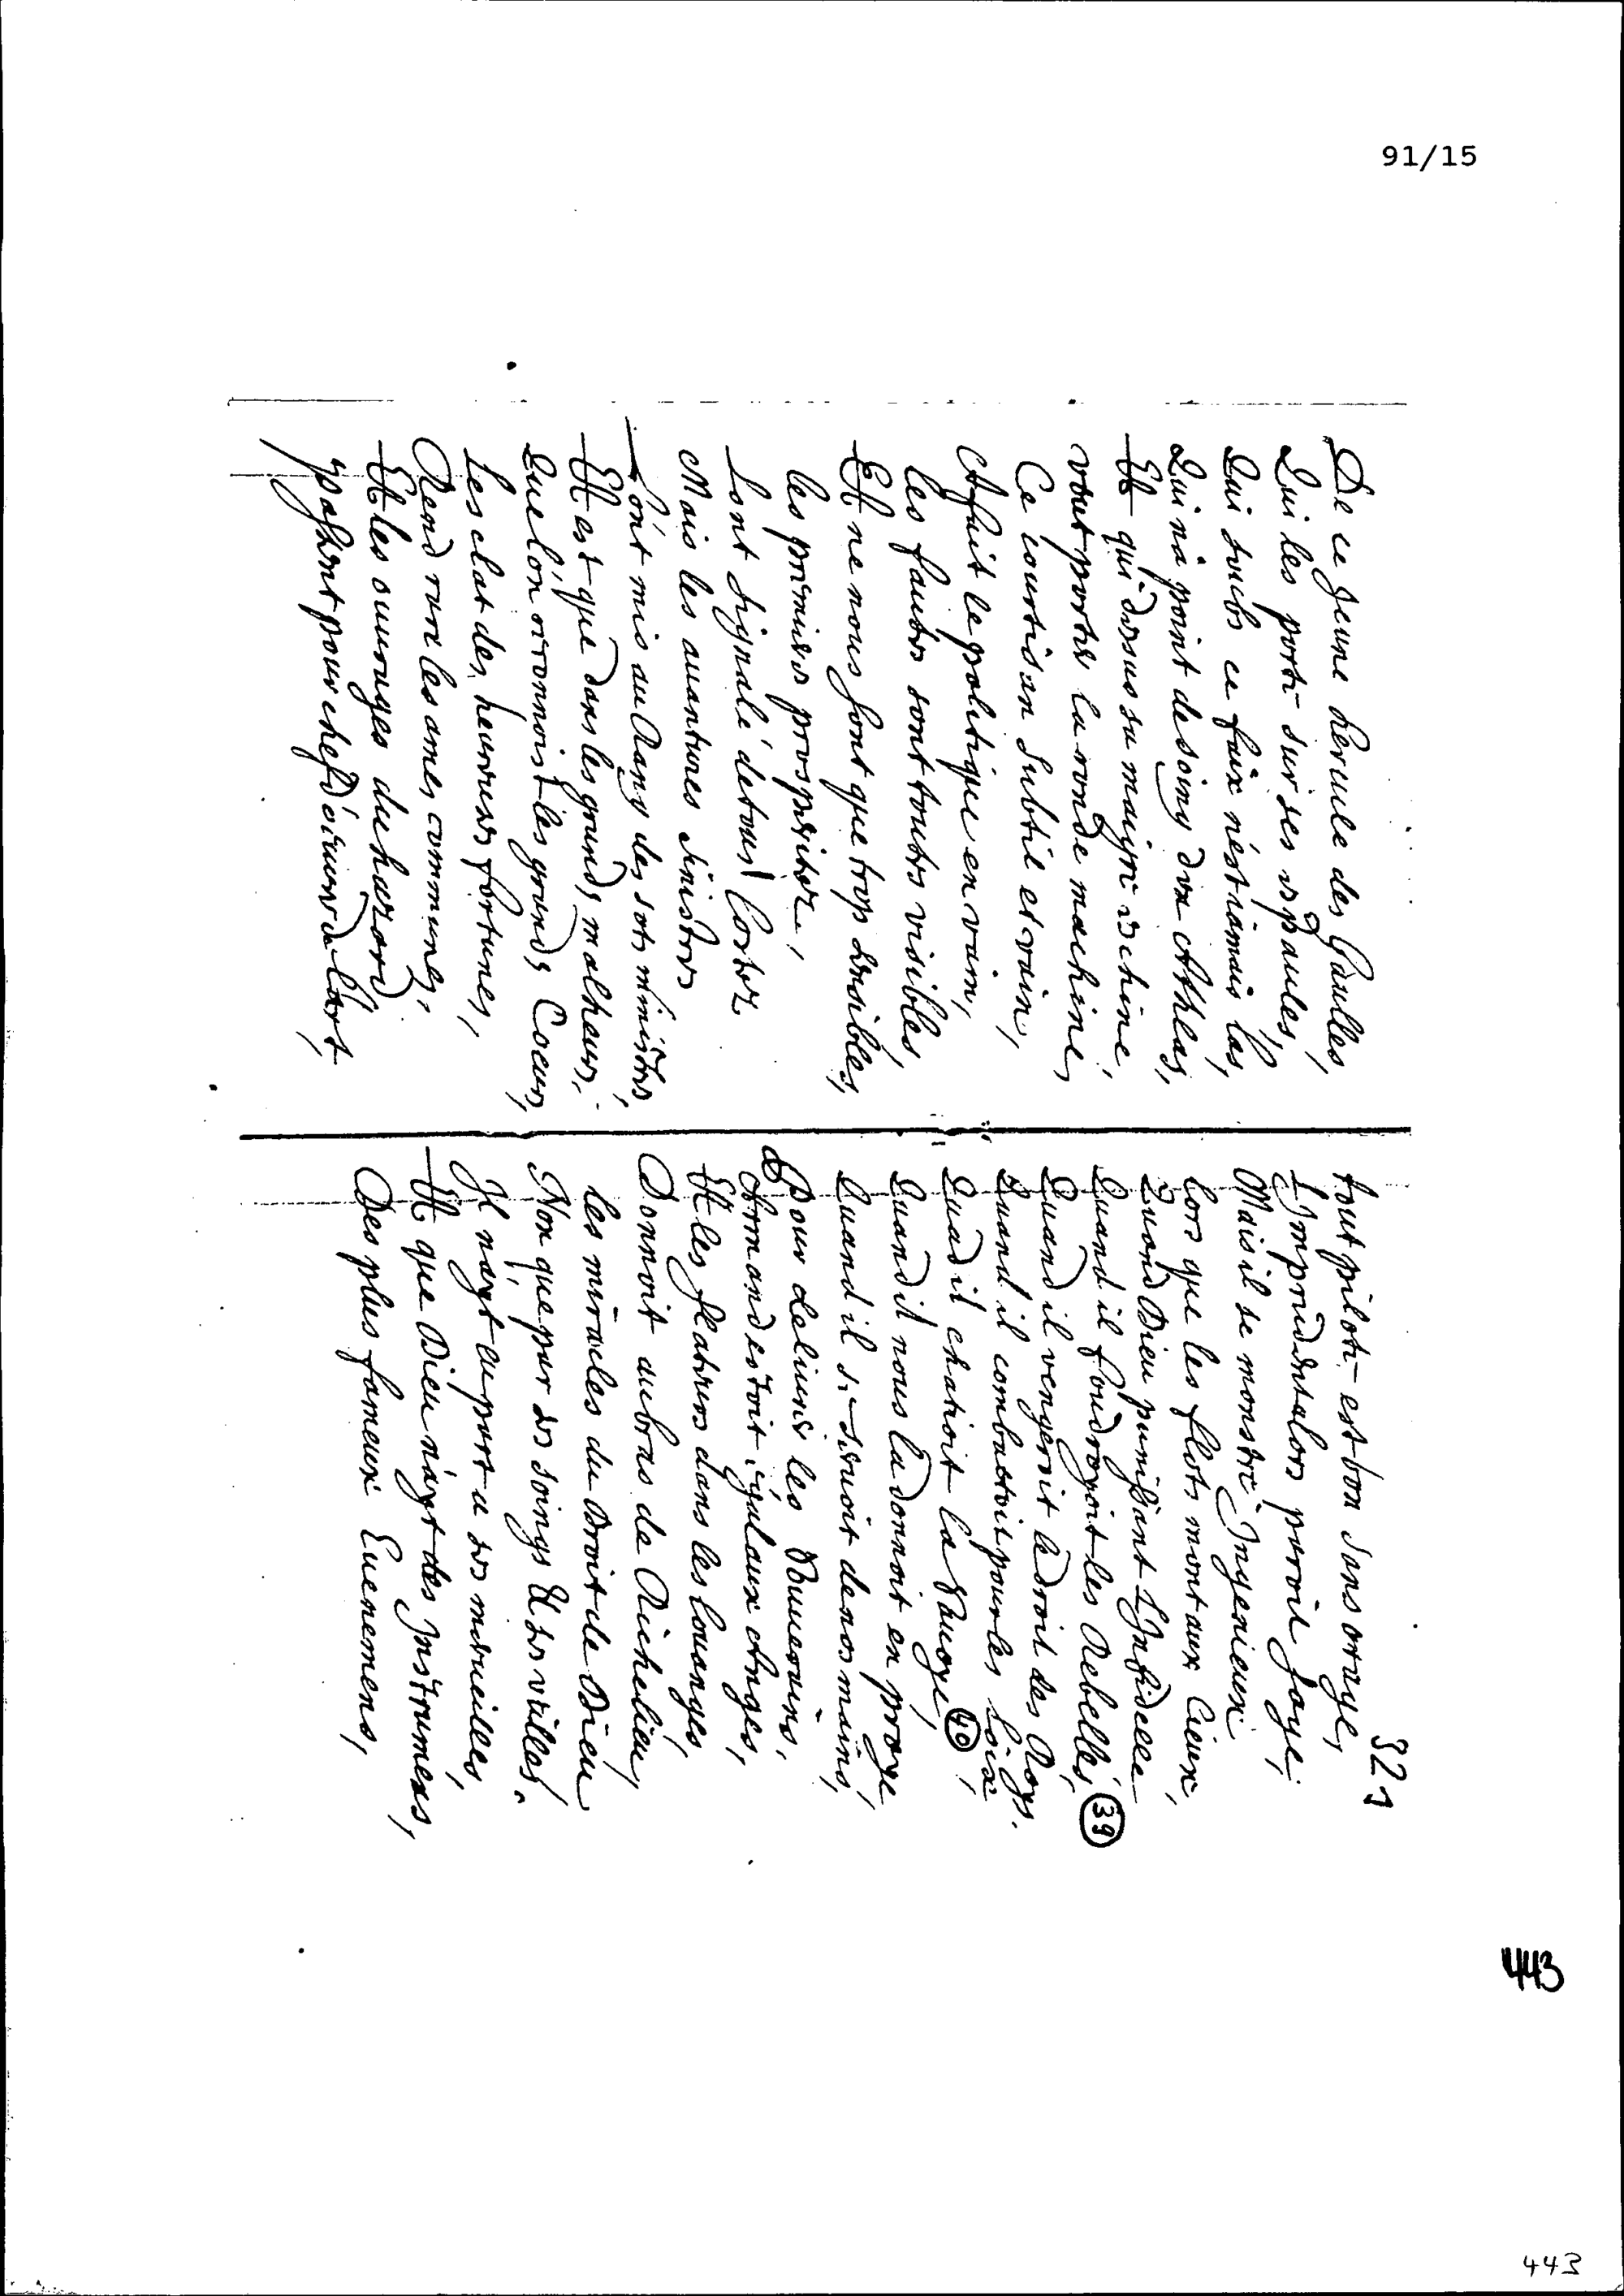 91/15
De ce jeune hercule des Gaulles,
Qui les porte sur ses espaules,
Qui soubs ce faix n'est iamais las,
Qui n'a point de soing d'un Athlas,
Et qui dessus sa maigre eschine,
veut porter la ronde machine,
Ce courtisan subtil et vain,
A fait le politique en vain,
les fautes sont toutes visibles,
Et ne nous sont que trop sensibles,
les premieres prosperitez,
Sont signalé de tous Costez
Mais les auantures sinistres
Sont mis au Rang des sots ministres,
Et est que dans les grands malheurs,
Que l'on reconnoist les grands Coeurs,
Les clat des heureuses fortunes,
Rend rare les ames communes,
Et les ouurages du hazard
passent pour chef d'oeuure de l'art,
321
tout pilote est bon sans orage,
L'Imprudent alors paroit sage,
Mais il se monstre Ingenieux
lors que les flots vont aux Cieux,
Quand Dieu punissant L'Infidelle
Quand il foudroyoit les Rebelles, 39
Quand il vengeoit le droit des Roys.
Quand il combattoit pour les Loix,
Quad il chatioit la Sauoye, 40
Quand il nous la donnoit en proye
Quand il se seruoit de nos mains,
Pour deliurer les Souuerains,
Armand estoit egal aux Anges,
Et les flatteurs dans les louanges,
Donnoit au bras de Richelieu,
les miracles du droit de Dieu
Non que par ses soings & ses veilles,
Il n'ayt eu part a ses merueilles,
Et que Dieu n'ayt des Instrumens,
Des plus fameux Euenemens,
443
443